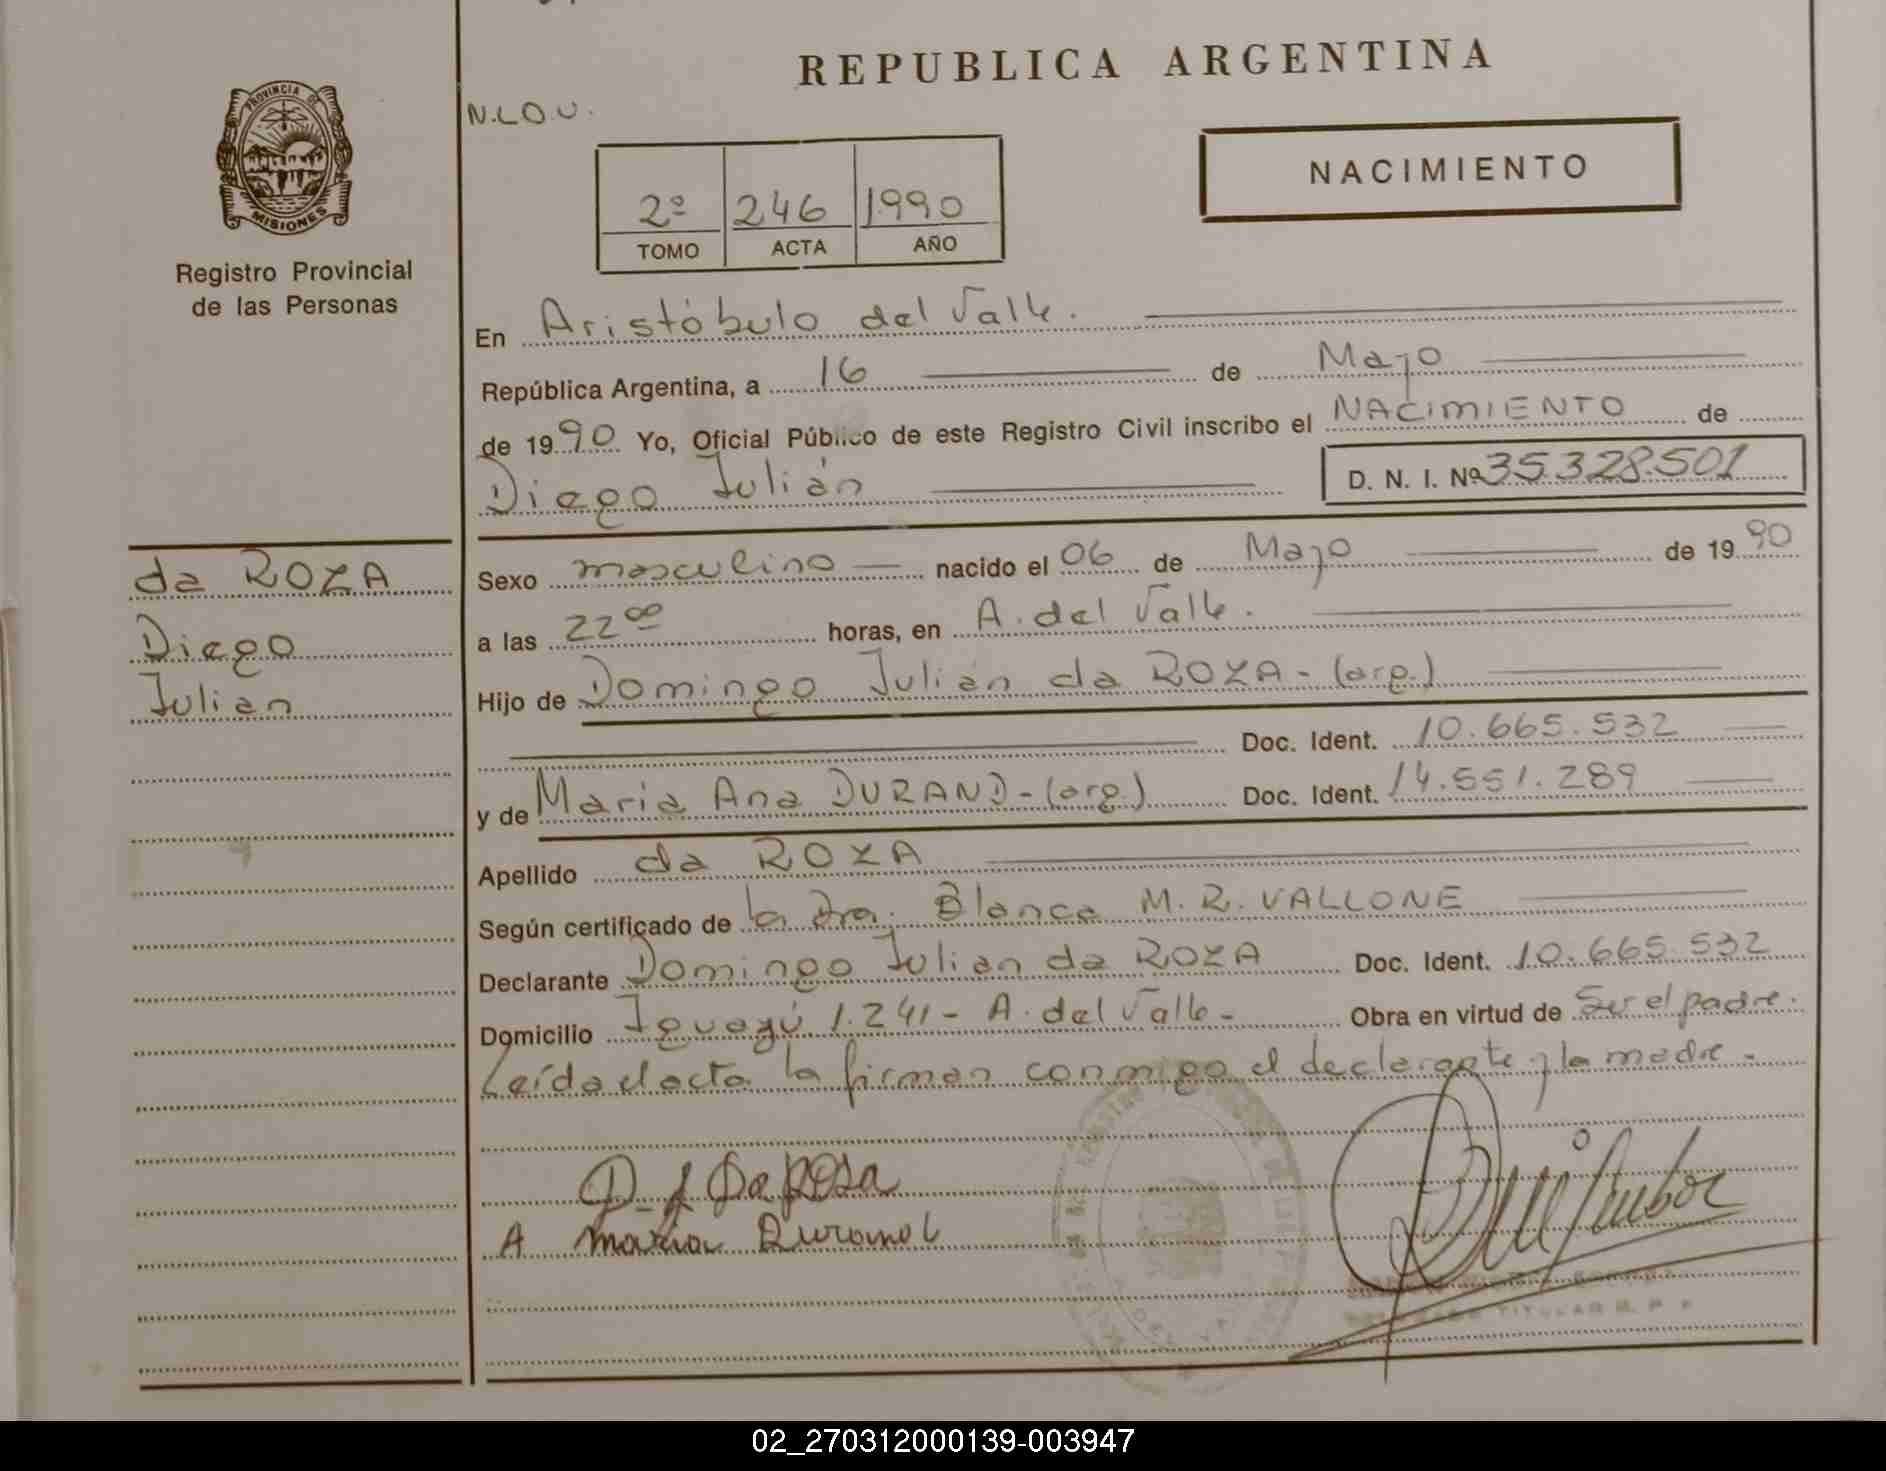 REPUBLICA ARGENTINA
N.L.O.U.
PROVINCIA DE
MISIONES
Registro Provincial
de las Personas
NACIMIENTO
2º 246 1990
TOMO ACTA AÑO
En Aristóbulo del Valle.
República Argentina, a 16 de Mayo
de 1990 Yo, Oficial Público de este Registro Civil inscribo el NACIMIENTO de
Diego Julián D. N. I. Nº 35.328.501
da ROZA
Diego
Julian
Sexo masculino nacido el 06 de Mayo de 1990
a las 22 00 horas, en A. del Valle.
Hijo de Domingo Julián da ROZA - (arg.)
Doc. Ident. 10.665.532
y de Maria Ana DURAND - (arg.) Doc. Ident. 14.551.289
Apellido da ROZA
Según certificado de la Dra. Blanca M. R. VALLONE
Declarante Domingo Julian da ROZA Doc. Ident. 10.665.532
Domicilio Iguazú 1.241 - A. del Valle - Obra en virtud de Ser el padre.
Leída el acta la firman conmigo el declarante y la madre -
D. J Da Rosa
A Maria Durand
TITULAR R. P. P.
02_270312000139-003947